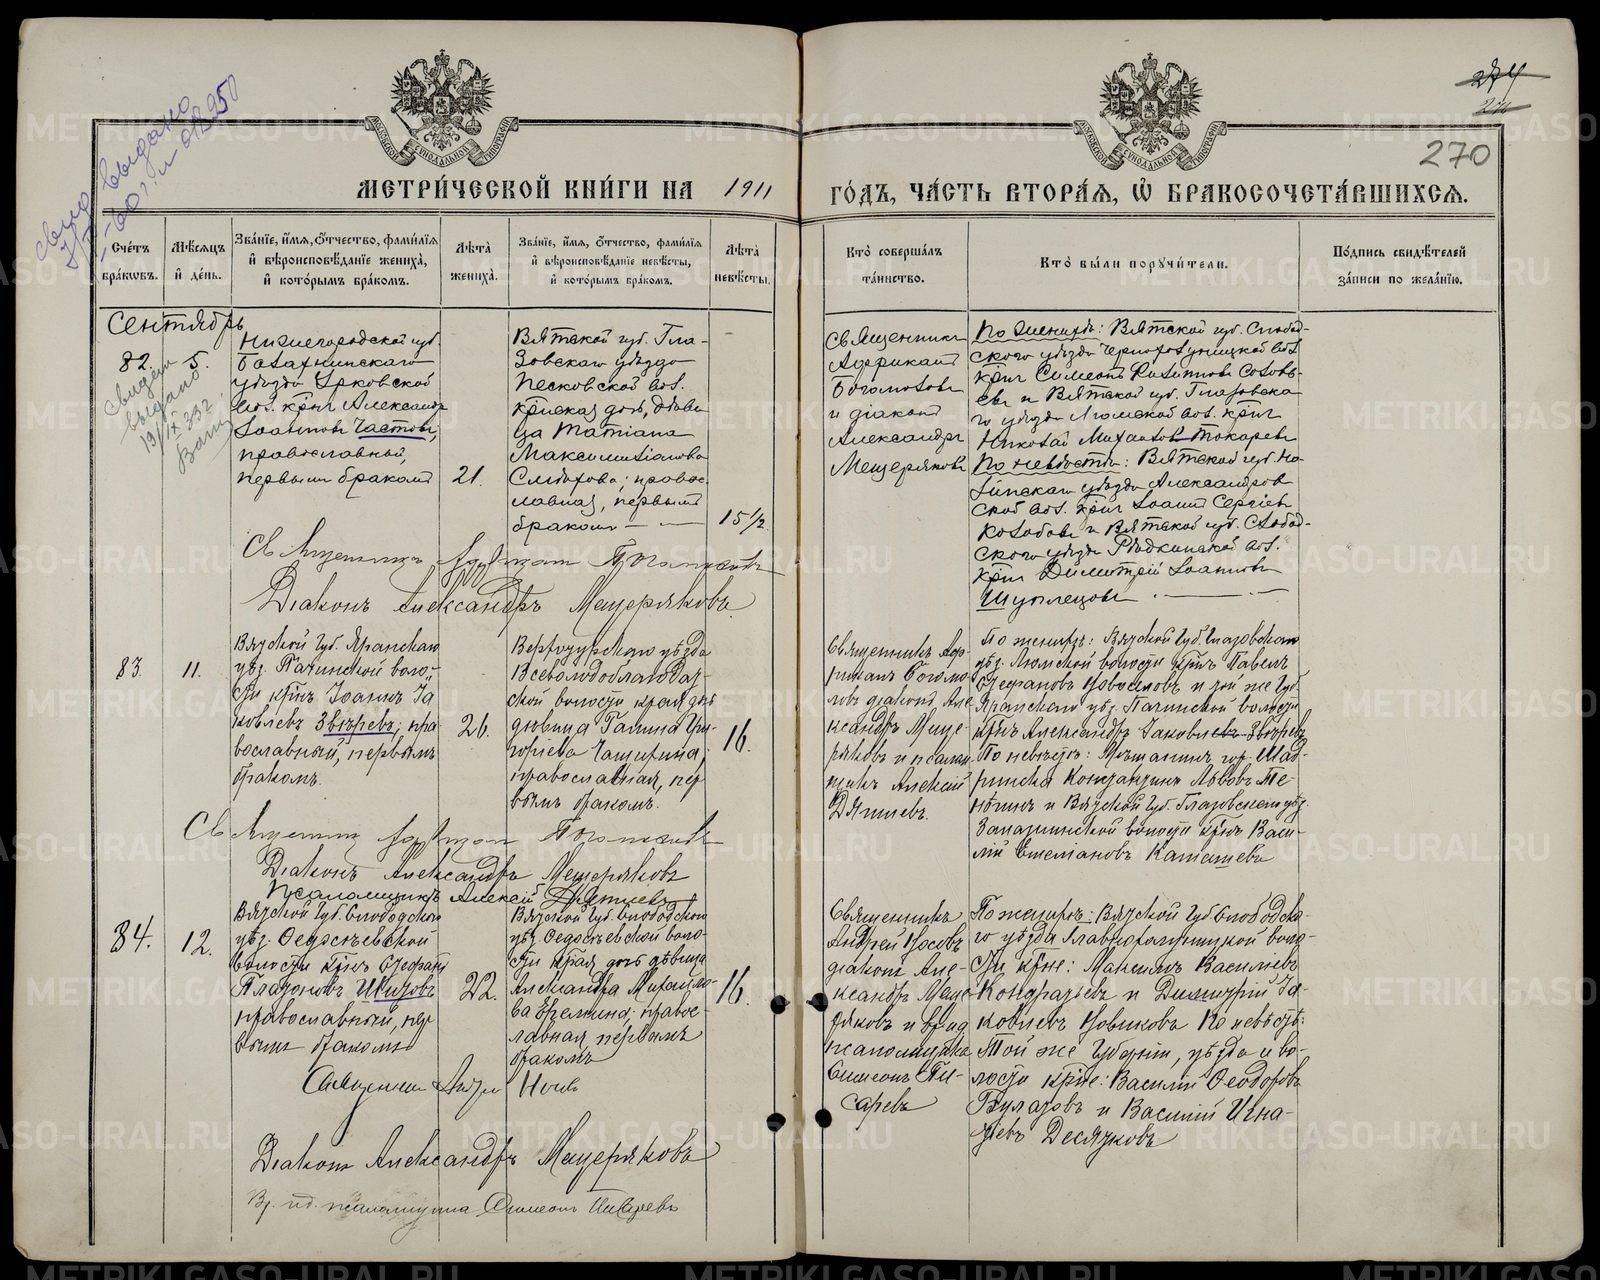 МЕТРИ́ЧЕСКОЙ КНИ́ГИ НА 1911
ГО́ДЪ, ЧА́СТЬ ВТОРА́Я, Ѽ БРАКОСОЧЕТА́ВШИХСЯ.
274
270
Сче́тъ бра́кѡвъ.
Мѣ́сяцъ и҆ де́нь.
Зва́нїе, и҆́мя, ѻ҆́тчество, фамилїя и҆ вѣроисповѣ́данїе жениха̀, и҆ кото́рымъ бра́комъ.
Лѣ́та жениха̀.
Зва́нїе, и҆́мя, ѻ҆́тчество, фамилїя и҆ вѣроисповѣ́данїе невѣ́сты, и҆ кото́рымъ бра́комъ.
Лѣ́та невѣ́сты.
Кто̀ соверша́лъ та́инство.
Кто̀ бы́ли поручи́тели.
По́дпись свидѣ́телей за́писи по жела́нїю.
Сентябрь
82.
5.
Нижегородской губ.
Балахнинскаго
уѣзда
вол. крнъ Александръ
Іоанновъ Частовъ,
православный,
первымъ бракомъ
21.
Вятской губ. Гла-
зовскаго уѣзда
Песковской вол.
крнская дочь, дѣви
ца Татіана
Максимиліанова
правос
лавная, первымъ
бракомъ
15 1/2
Священникъ
Африканъ
Богомоловъ
и діаконъ
Александръ
Мещеряковъ
По женихѣ: Вятской губ. Слобод-
скаго уѣзда Чернохолуницкой вол.
крнъ Симеонъ
и Вятской губ. Глазовска
го уѣзда Люмской вол. крнъ
Николай Михаиловъ Токаревъ
По невѣстѣ: Вятской губ. Но
линскаго уѣзда Александров
ской вол. крнъ Іоаннъ Сергіевъ
и Вятской губ. Слобод-
скаго уѣзда вол.
крнъ Димитрій Іоанновъ
Шуплецовъ
Священникъ Африканъ Богомоловъ
Діаконъ Александръ Мещеряковъ
83.
11.
Вятской губ. Яранскаго
уѣз. Пачинской воло-
сти крнъ Іоаннъ Іа
ковлевъ Звѣревъ, пра
вославный, первымъ
бракомъ.
26.
Верхотурскаго уѣзда
Всеволодоблагодат-
ской волости крная дочь
дѣвица Галина Гри-
горіева Чащина,
православная, пер
вымъ бракомъ.
16.
Священникъ Аф-
риканъ Богомо-
ловъ діаконъ Але
ксандръ Меще
ряковъ и псалом
щикъ Алексій
Дягилевъ.
По женихѣ: Вятской губ. Глазовскаго
уѣз. Люмской волости крнъ Павелъ
Стефановъ и той же губ.
Яранскаго уѣз. Пачинской волости
крнъ Александръ Іаковлевъ Звѣревъ
По невѣстѣ: Мѣщанинъ гор. Шад-
ринска Константинъ Львовъ
и Вятской губ. Глазовскаго уѣз.
волости крнъ Васи-
лій Емеліановъ
Священникъ Африканъ Богомоловъ
Діаконъ Александръ Мещеряковъ
Псаломщикъ Алексій Дягилевъ
84.
12.
Вятской губ. Слободского
уѣз. Ѳедосѣевской
волости крнъ Стефанъ
Платоновъ
православный, пер
вымъ бракомъ
22.
Вятской губ. Слободского
уѣз. Ѳедосѣевской воло-
сти крная дочь дѣвица
Александра Михаило-
ва Еремина, правос-
лавная, первымъ
бракомъ
16.
Священникъ
Андрей Носовъ
діаконъ Але-
ксандръ Меще
ряковъ и вр ид
псаломщика
Симеонъ Пи-
саревъ
По женихѣ: Вятской губ. Слободска-
го уѣзда Главнохолуницкой воло-
сти крне: Максимъ Василіевъ
Кондратьевъ и Димитрій Іа-
ковлевъ Новиковъ По невѣстѣ:
Той же губерніи, уѣзда и во-
лости крне: Василій Ѳеодоровъ
Булатовъ и Василій Игна-
тьевъ Десятковъ
Священникъ Андрей Носовъ
Діаконъ Александръ Мещеряковъ
Вр. ид. псаломщика Симеонъ Писаревъ
METRIKI.GASO-URAL.RU